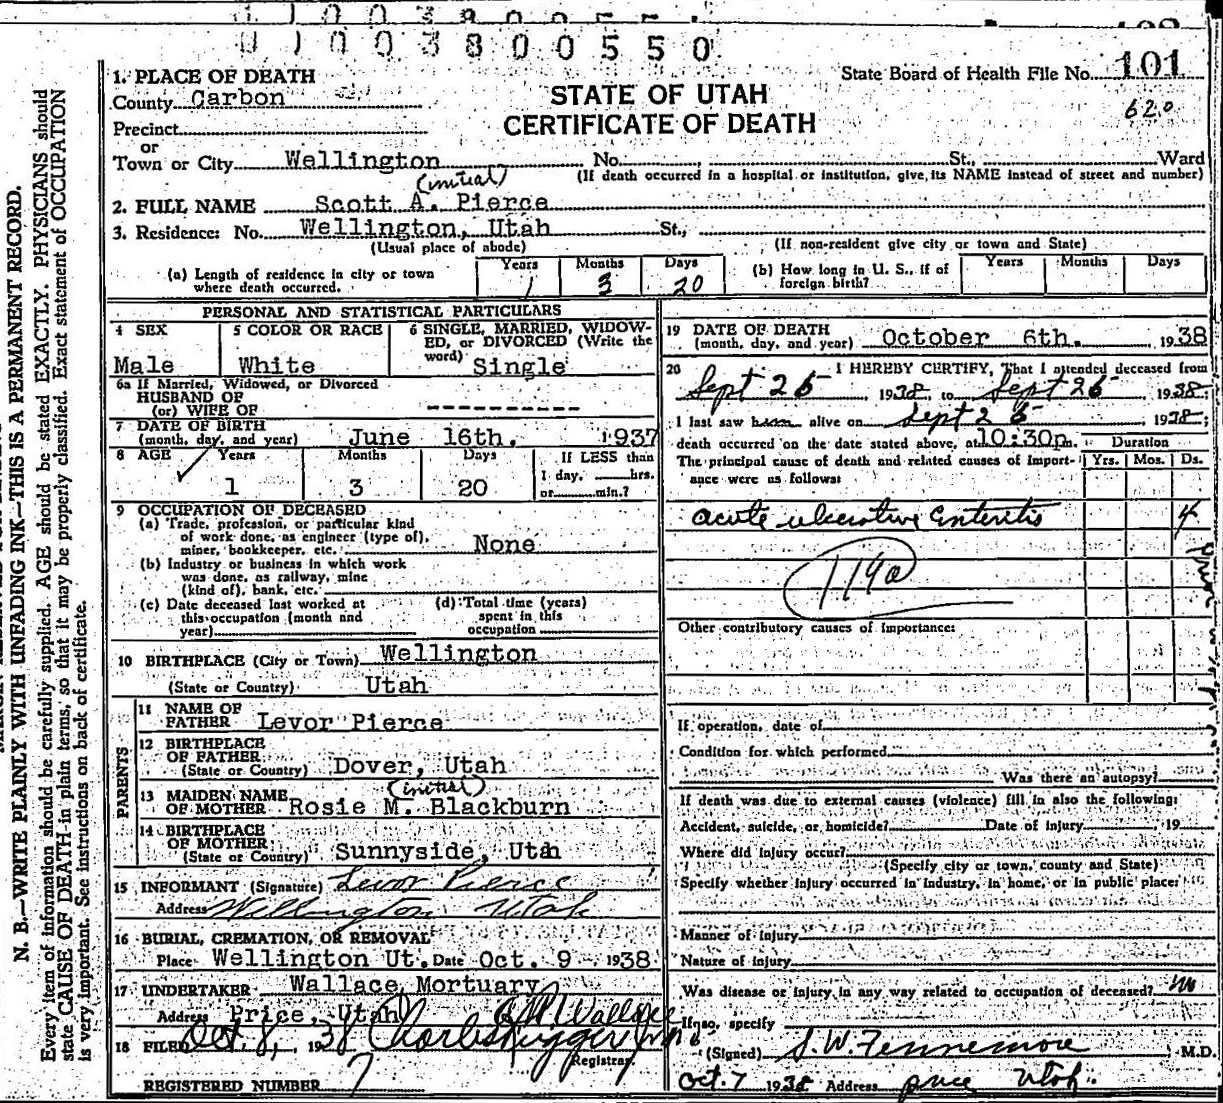 0 1 0 0 3 8 0 0 5 5 0
101
State Board of Health File No.
620
1. PLACE OF DEATH
County Carbon
STATE OF UTAH
CERTIFICATE OF DEATH
Precinct
or
Town or City Wellington No. St., Ward
(If death occurred in a hospital or institution, give its NAME instead of street and number)
(initial)
2. FULL NAME Scott A. Pierce
3. Residence: No. Wellington, Utah St.,
(Usual place of abode) (If non-resident give city or town and State)
(a) Length of residence in city or town where death occurred. Years 1 Months 3 Days 20
(b) How long in U. S., if of foreign birth? Years Months Days
PERSONAL AND STATISTICAL PARTICULARS
4 SEX Male
5 COLOR OR RACE White
6 SINGLE, MARRIED, WIDOWED, or DIVORCED (Write the word) Single
6a If Married, Widowed, or Divorced
HUSBAND OF
(or) WIFE OF ----------
7 DATE OF BIRTH
(month, day, and year) June 16th. 1937
8 AGE Years 1 Months 3 Days 20 If LESS than 1 day, hrs. or min.?
9 OCCUPATION OF DECEASED
(a) Trade, profession, or particular kind
of work done, as engineer (type of),
miner, bookkeeper, etc. None
(b) Industry or business in which work
was done, as railway, mine
(kind of), bank, etc.
(c) Date deceased last worked at
this occupation (month and
year)
(d) Total time (years)
spent in this
occupation
10 BIRTHPLACE (City or Town) Wellington
(State or Country) Utah
PARENTS
11 NAME OF
FATHER Levor Pierce
12 BIRTHPLACE
OF FATHER
(State or Country) Dover, Utah
(initial)
13 MAIDEN NAME
OF MOTHER Rosie M. Blackburn
14 BIRTHPLACE
OF MOTHER
(State or Country) Sunnyside, Utah
15 INFORMANT (Signature) Levor Pierce
Address Wellington Utah
16 BURIAL, CREMATION, OR REMOVAL
Place Wellington Ut. Date Oct. 9 1938
17 UNDERTAKER Wallace Mortuary
Address Price, Utah Wallace
18 FILED Oct. 8, 1938
Registrar.
REGISTERED NUMBER 7
19 DATE OF DEATH
(month, day, and year) October 6th. 1938
20 I HEREBY CERTIFY, That I attended deceased from
Sept 26 1938, to Sept 26 1938;
I last saw him alive on Sept 26 1938;
death occurred on the date stated above, at 10:30p.m. Duration
The principal cause of death and related causes of importance were as follows: Yrs. Mos. Ds.
acute ulcerative Enteritis 4
119a
Other contributory causes of importance:
If operation, date of
Condition for which performed
Was there an autopsy?
If death was due to external causes (violence) fill in also the following:
Accident, suicide, or homicide? Date of injury , 19
Where did injury occur?
(Specify city or town, county and State)
Specify whether injury occurred in industry, in home, or in public place:
Manner of injury
Nature of injury
Was disease or injury in any way related to occupation of deceased? no
If so, specify
(Signed) S. W. Fennemore M.D.
Oct. 7 1938 Address price Utah
N. B.—WRITE PLAINLY WITH UNFADING INK—THIS IS A PERMANENT RECORD.
Every item of information should be carefully supplied. AGE should be stated EXACTLY. PHYSICIANS should
state CAUSE OF DEATH in plain terms, so that it may be properly classified. Exact statement of OCCUPATION
is very important. See instructions on back of certificate.